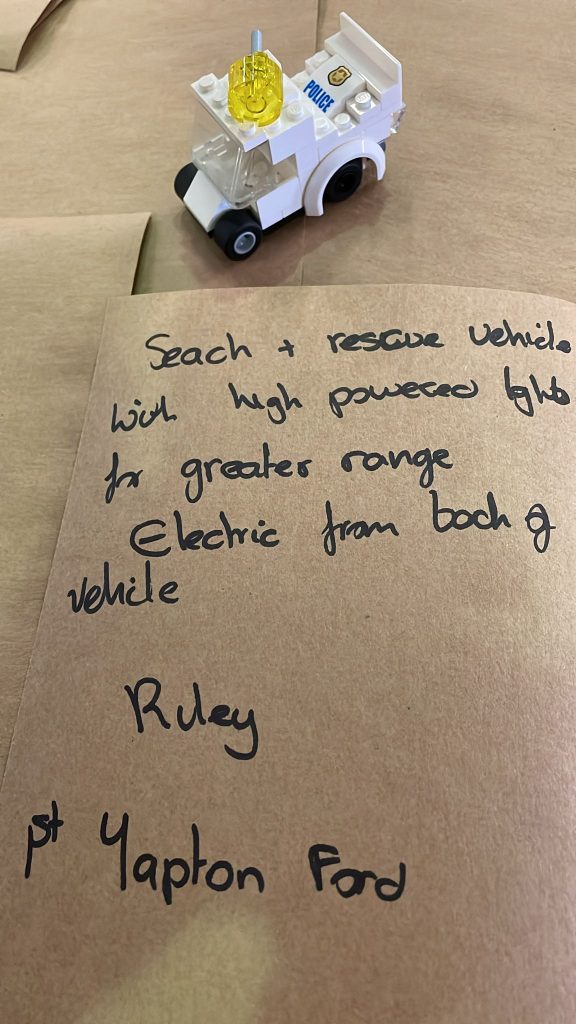 POLICE
Seach + rescue vehicle
with high powered lights
for greater range
Electric from back of
vehicle
Riley
1st Yapton Ford